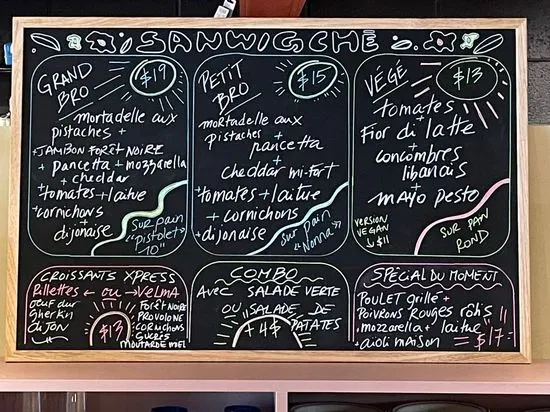 SANWIGCHÉ
GRAND
BRO
$19
mortadelle aux
pistaches +
+ JAMBON FORÊT NOIRE
+ pancetta + mozzarella
+ cheddar
+ tomates + laitue
+ cornichons
+ dijonaise
sur pain
"pistolet"
10"
PETIT
BRO
$15
mortadelle aux
pistaches
+
pancetta
+
cheddar mi-fort
+ tomates + laitue
+ cornichons
+ dijonaise
sur pain
"Nonna"
VÉGÉ
$13
tomates
+
Fior di latte
+
concombres
libanais
+
mayo pesto
VERSION
VEGAN
↓ $11
SUR PAIN
ROND
CROISSANTS XPRESS
Rillettes ← ou → VELMA
oeuf dur
Gherkin
DIJON
$13
FORÊT NOIRE
PROVOLONE
CORNICHONS
SUCRÉS
MOUTARDE MIEL
COMBO
AVEC SALADE VERTE
OU SALADE DE
PATATES
+4$
SPÉCIAL DU MOMENT
POULET grillé +
POIVRONS ROUGES RÔTIS
+ mozzarella + laitue
+ aïoli maison = $17